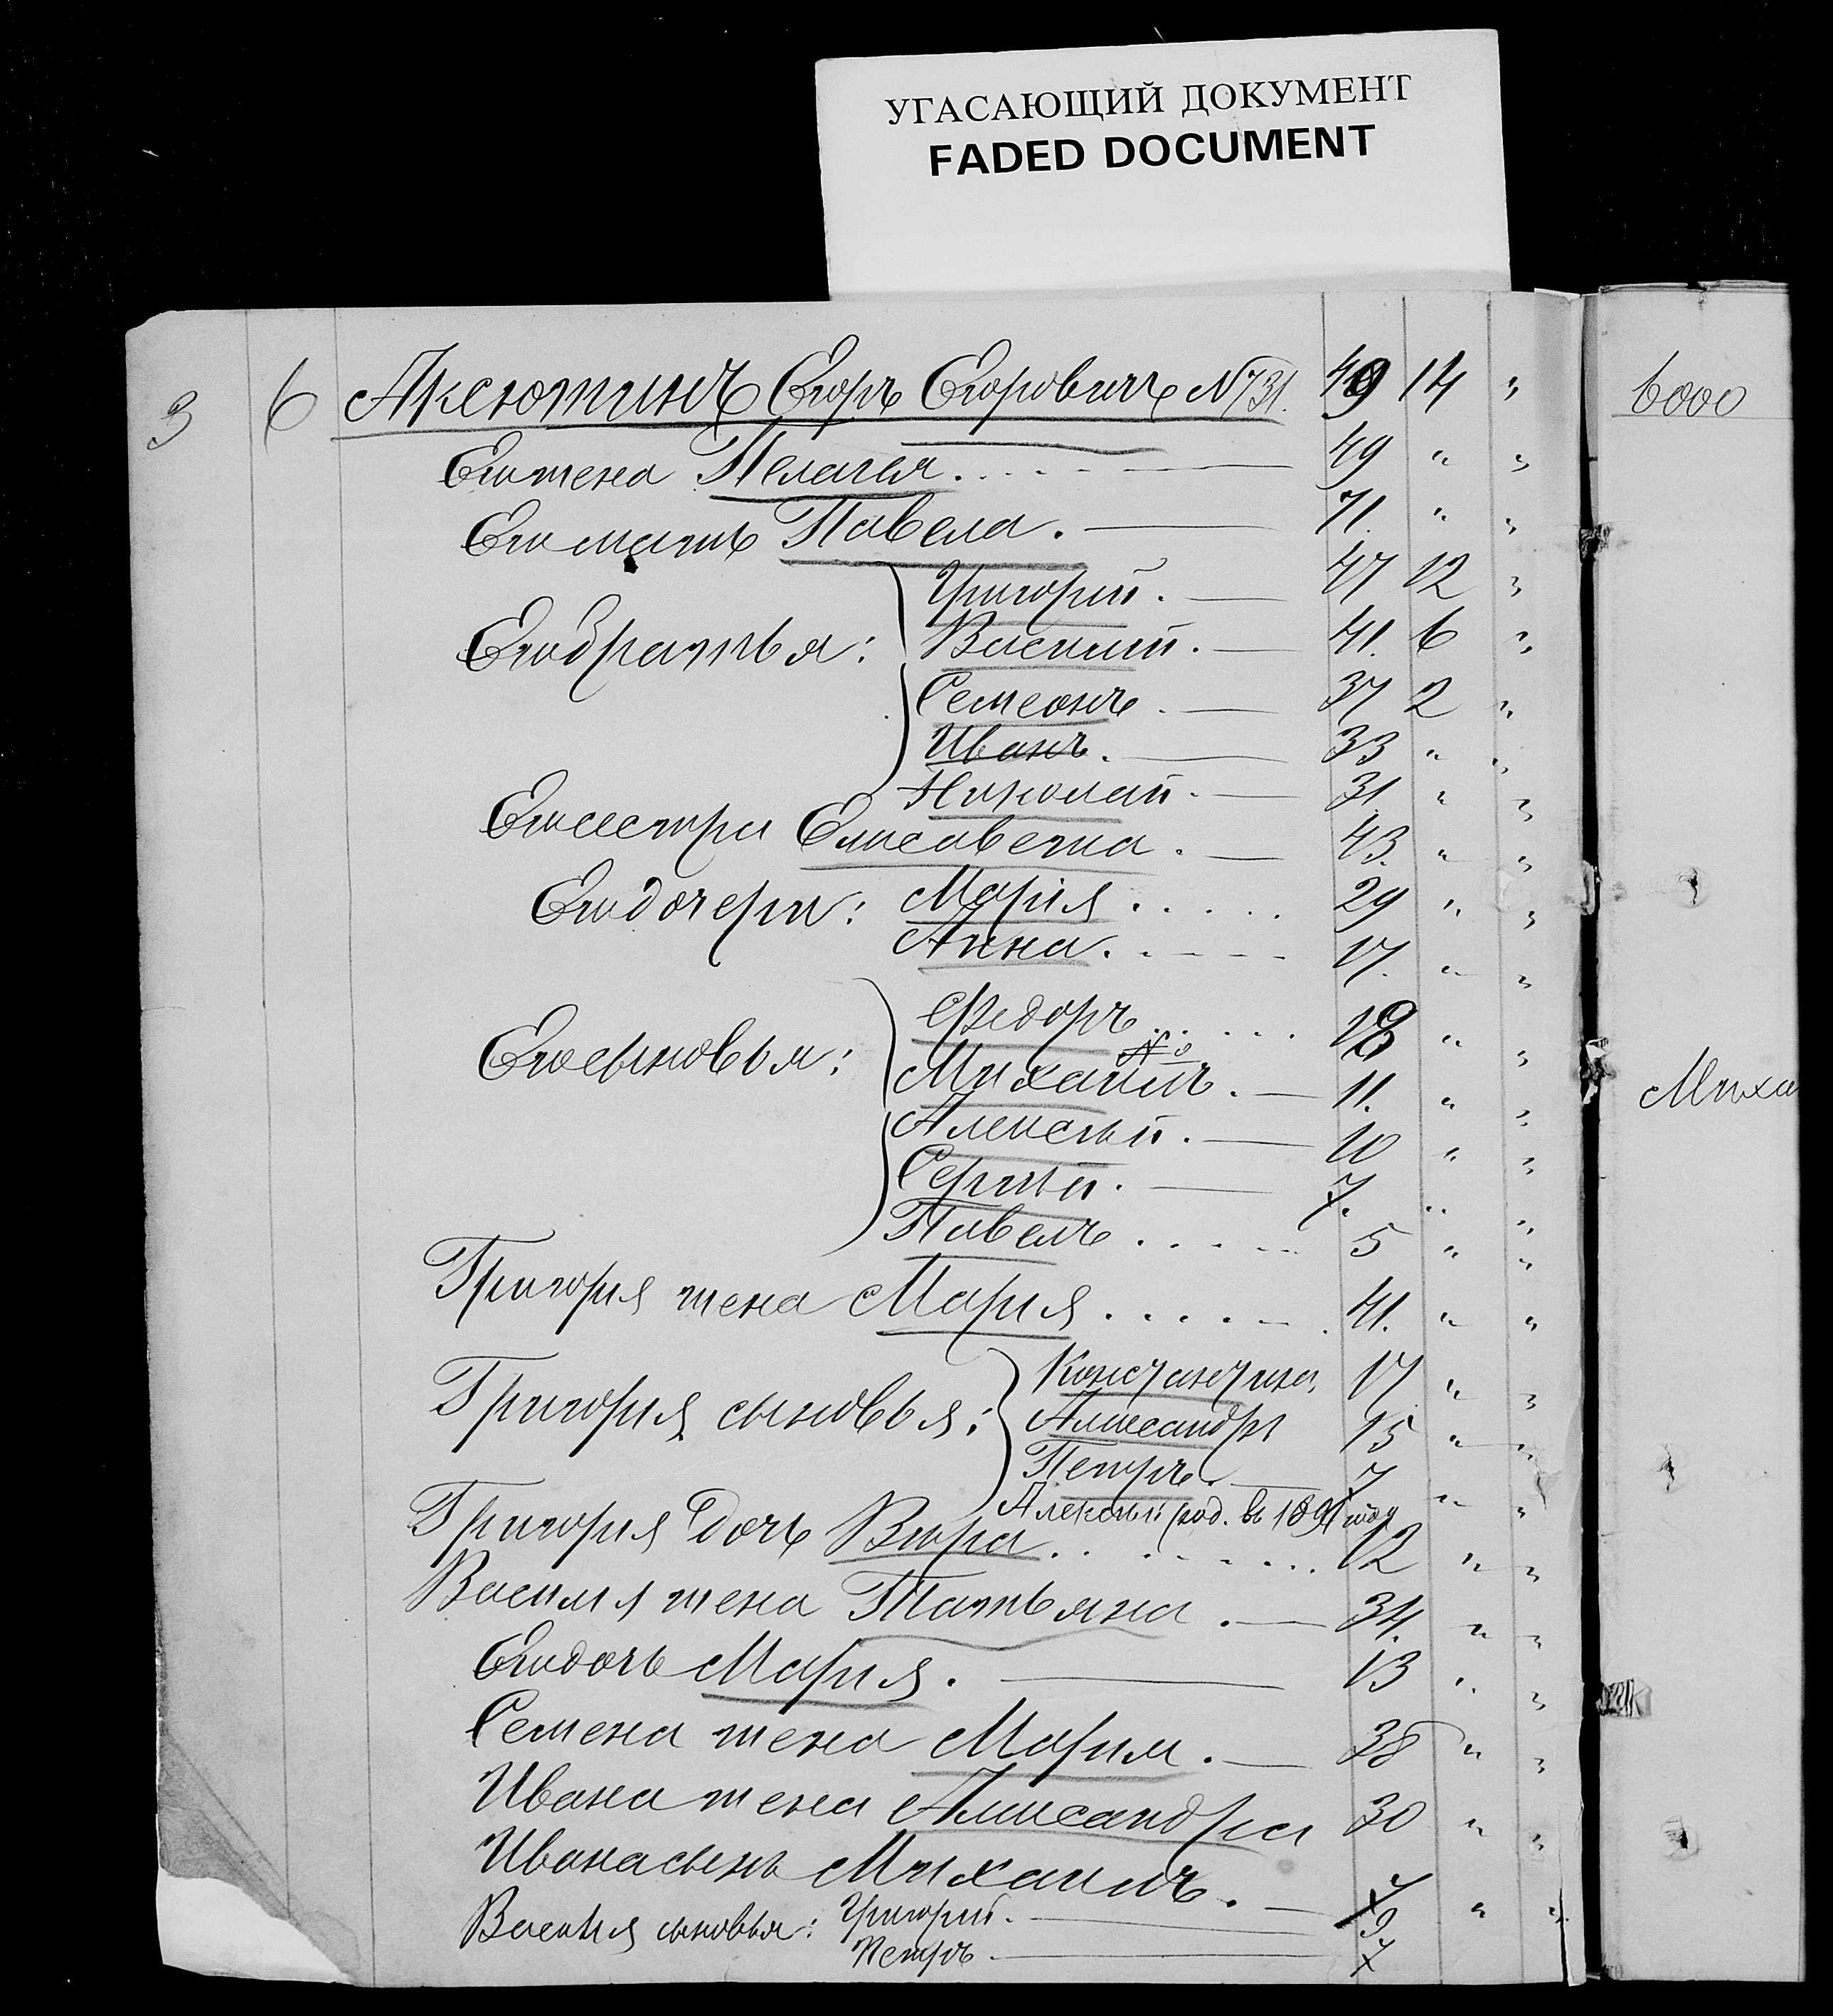 УГАСАЮЩИЙ ДОКУМЕНТ
FADED DOCUMENT
3 6 Аксютинъ Егоръ Егоровичъ N731. 49 14 "
6000
Его жена Пелагея. 49 " "
Его мать Павела. 71. " "
Григорій. 47 12 "
Его братья: Василій. 41. 6 "
Семеонъ. 37 2 "
Иванъ. 33 " "
Николай. 31. " "
Его сестра Елисавета. 43. " "
Его дочери: Марія 29 " "
Анна. 17. " "
Федоръ " "
Его сыновья: Михаилъ. 11. " "
Миха
Алексѣй. 10 " "
Сергѣй. 7. " "
Павелъ 5 " "
Григорія жена Марія 41. " "
Константинъ, 17 " "
Григорія сыновья: Александръ 15 " "
Петръ. 7 " "
Алексѣй род. въ 1891 году
Григорія дочь Вѣра 12 " "
Василія жена Татьяна. 34. " "
Его дочь Марія. 13 " "
Семена жена Марія. 38 " "
Ивана жена Александра 30 " "
Ивана сынъ Михаилъ. 7 " "
Василія сыновья: Григорій. 9
Петръ. 7